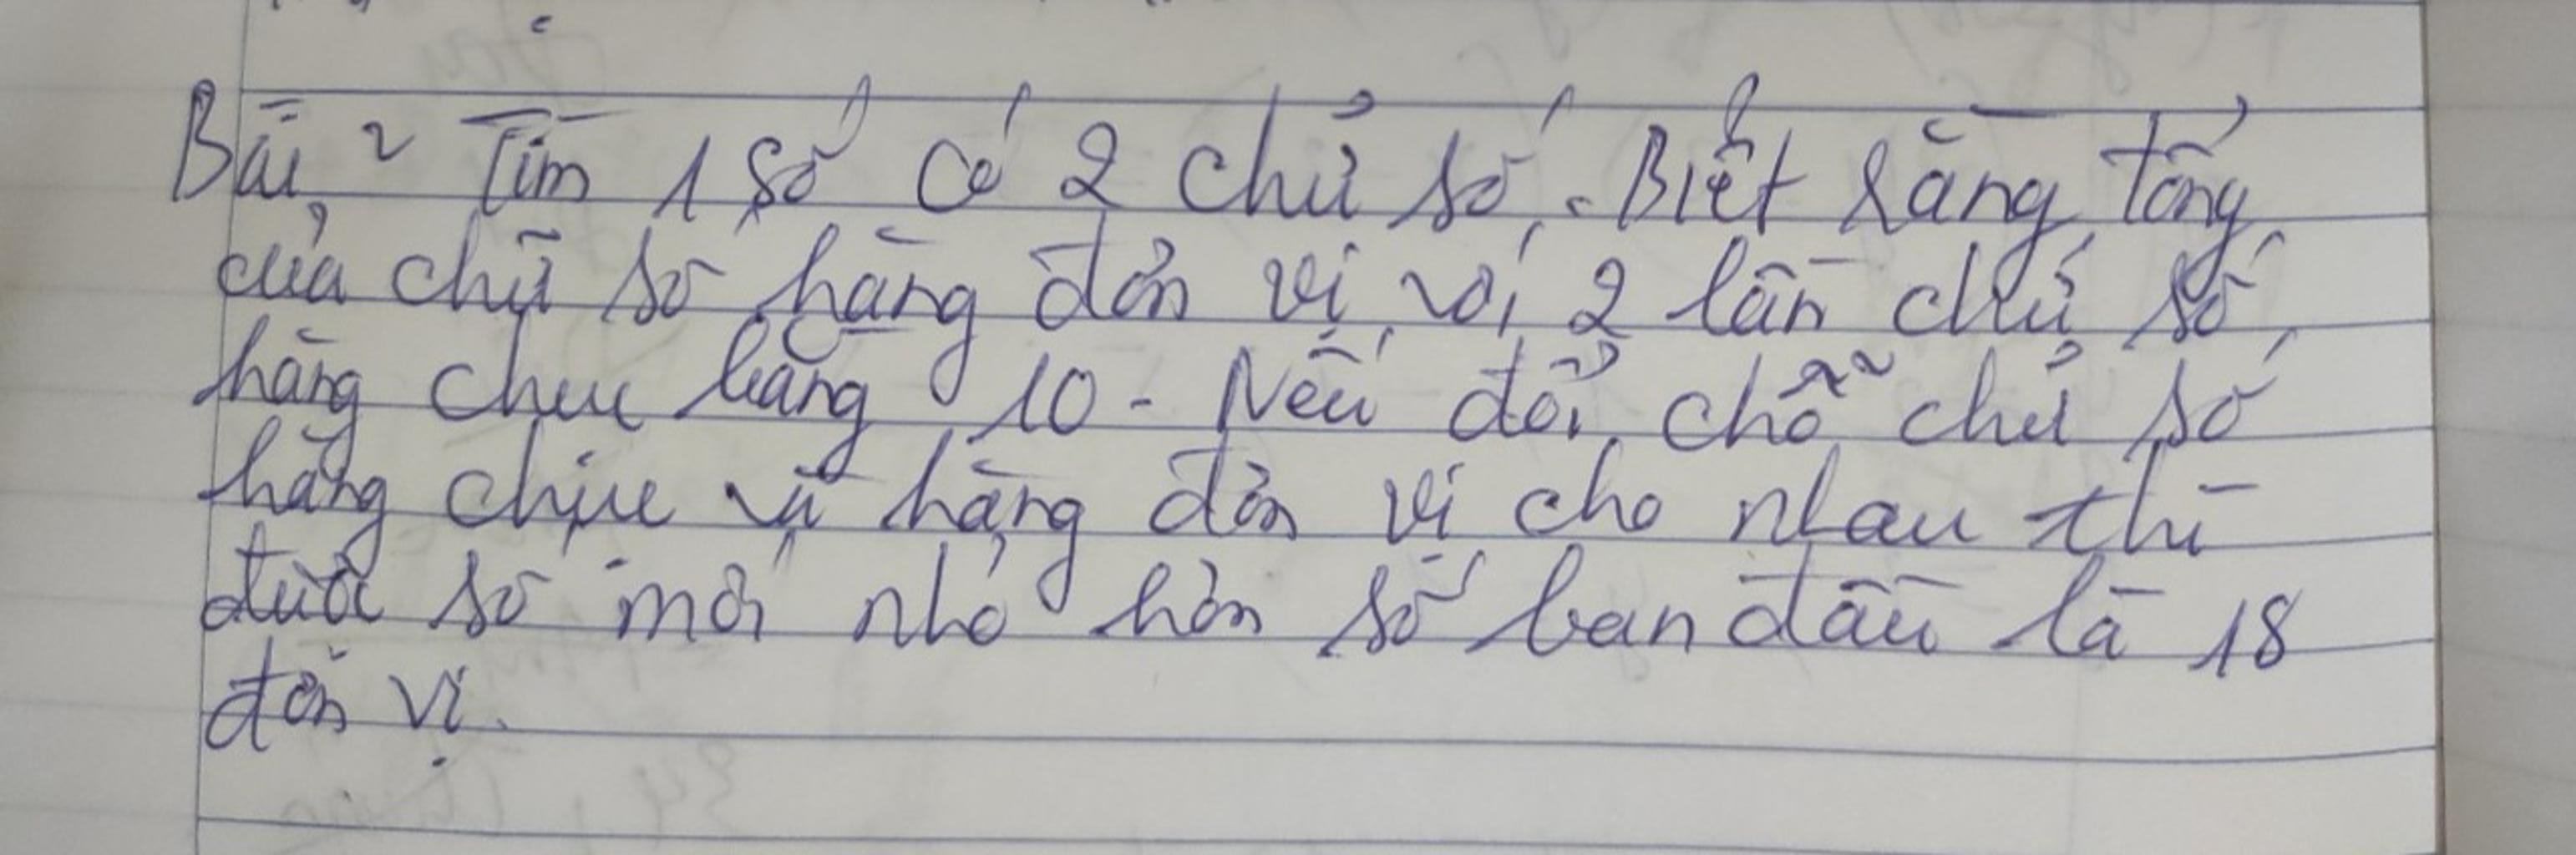 Bài 2 Tìm 1 số có 2 chữ số. Biết rằng tổng
của chữ số hàng đơn vị với 2 lần chữ số
hàng chục bằng 10. Nếu đổi chỗ chữ số
hàng chục và hàng đơn vị cho nhau thì
được số mới nhỏ hơn số ban đầu là 18
đơn vị.